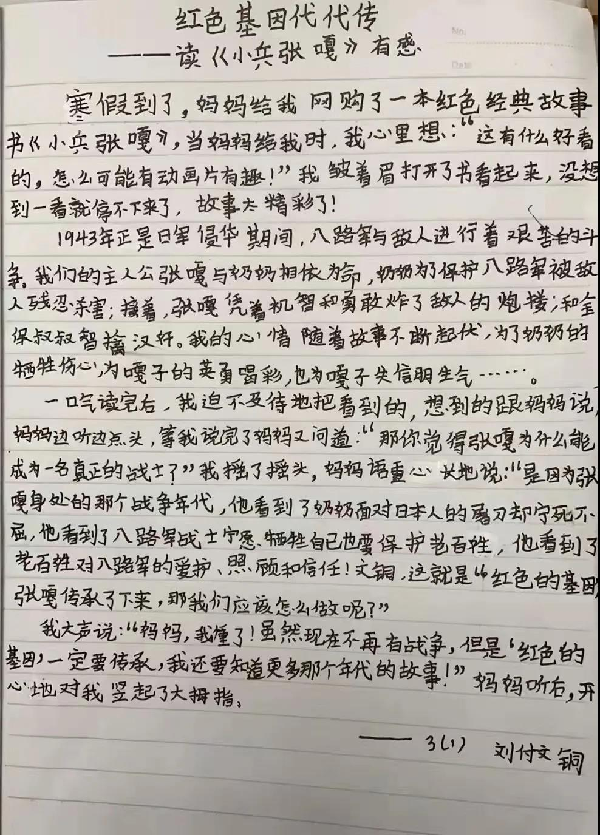 No.
Date
红色基因代代传
———读《小兵张嘎》有感
寒假到了，妈妈给我网购了一本红色经典故事
书《小兵张嘎》，当妈妈给我时，我心里想：“这有什么好看
的，怎么可能有动画片有趣！”我皱着眉打开了书看起来，没想
到一看就停不下来了，故事太精彩了！
1943年正是日军侵华期间，八路军与敌人进行着艰苦的斗
争。我们的主人公张嘎与奶奶相依为命，奶奶为了保护八路军被敌
人残忍杀害；接着，张嘎凭着机智和勇敢炸了敌人的炮楼；和金
保叔叔智擒汉奸。我的心情随着故事不断起伏，为了奶奶的
牺牲伤心，为嘎子的英勇喝彩，也为嘎子失信明生气……。
一口气读完后，我迫不及待地把看到的，想到的跟妈妈说，
妈妈边听边点头，等我说完了妈妈又问道：“那你觉得张嘎为什么能
成为一名真正的战士？”我摇了摇头，妈妈语重心长地说：“是因为张
嘎身处的那个战争年代，他看到了奶奶面对日本人的刀却宁死不
屈，他看到了八路军战士宁愿牺牲自己也要保护老百姓，他看到了
老百姓对八路军的爱护、照顾和信任！文铜，这就是“红色的基因，
张嘎传承了下来，那我们应该怎么做呢？”
我大声说：“妈妈，我懂了！虽然现在不再有战争，但是‘红色的
基因’一定要传承，我还要知道更多那个年代的故事！”妈妈听后，开
心地对我竖起了大拇指。
——3(1) 刘付文铜